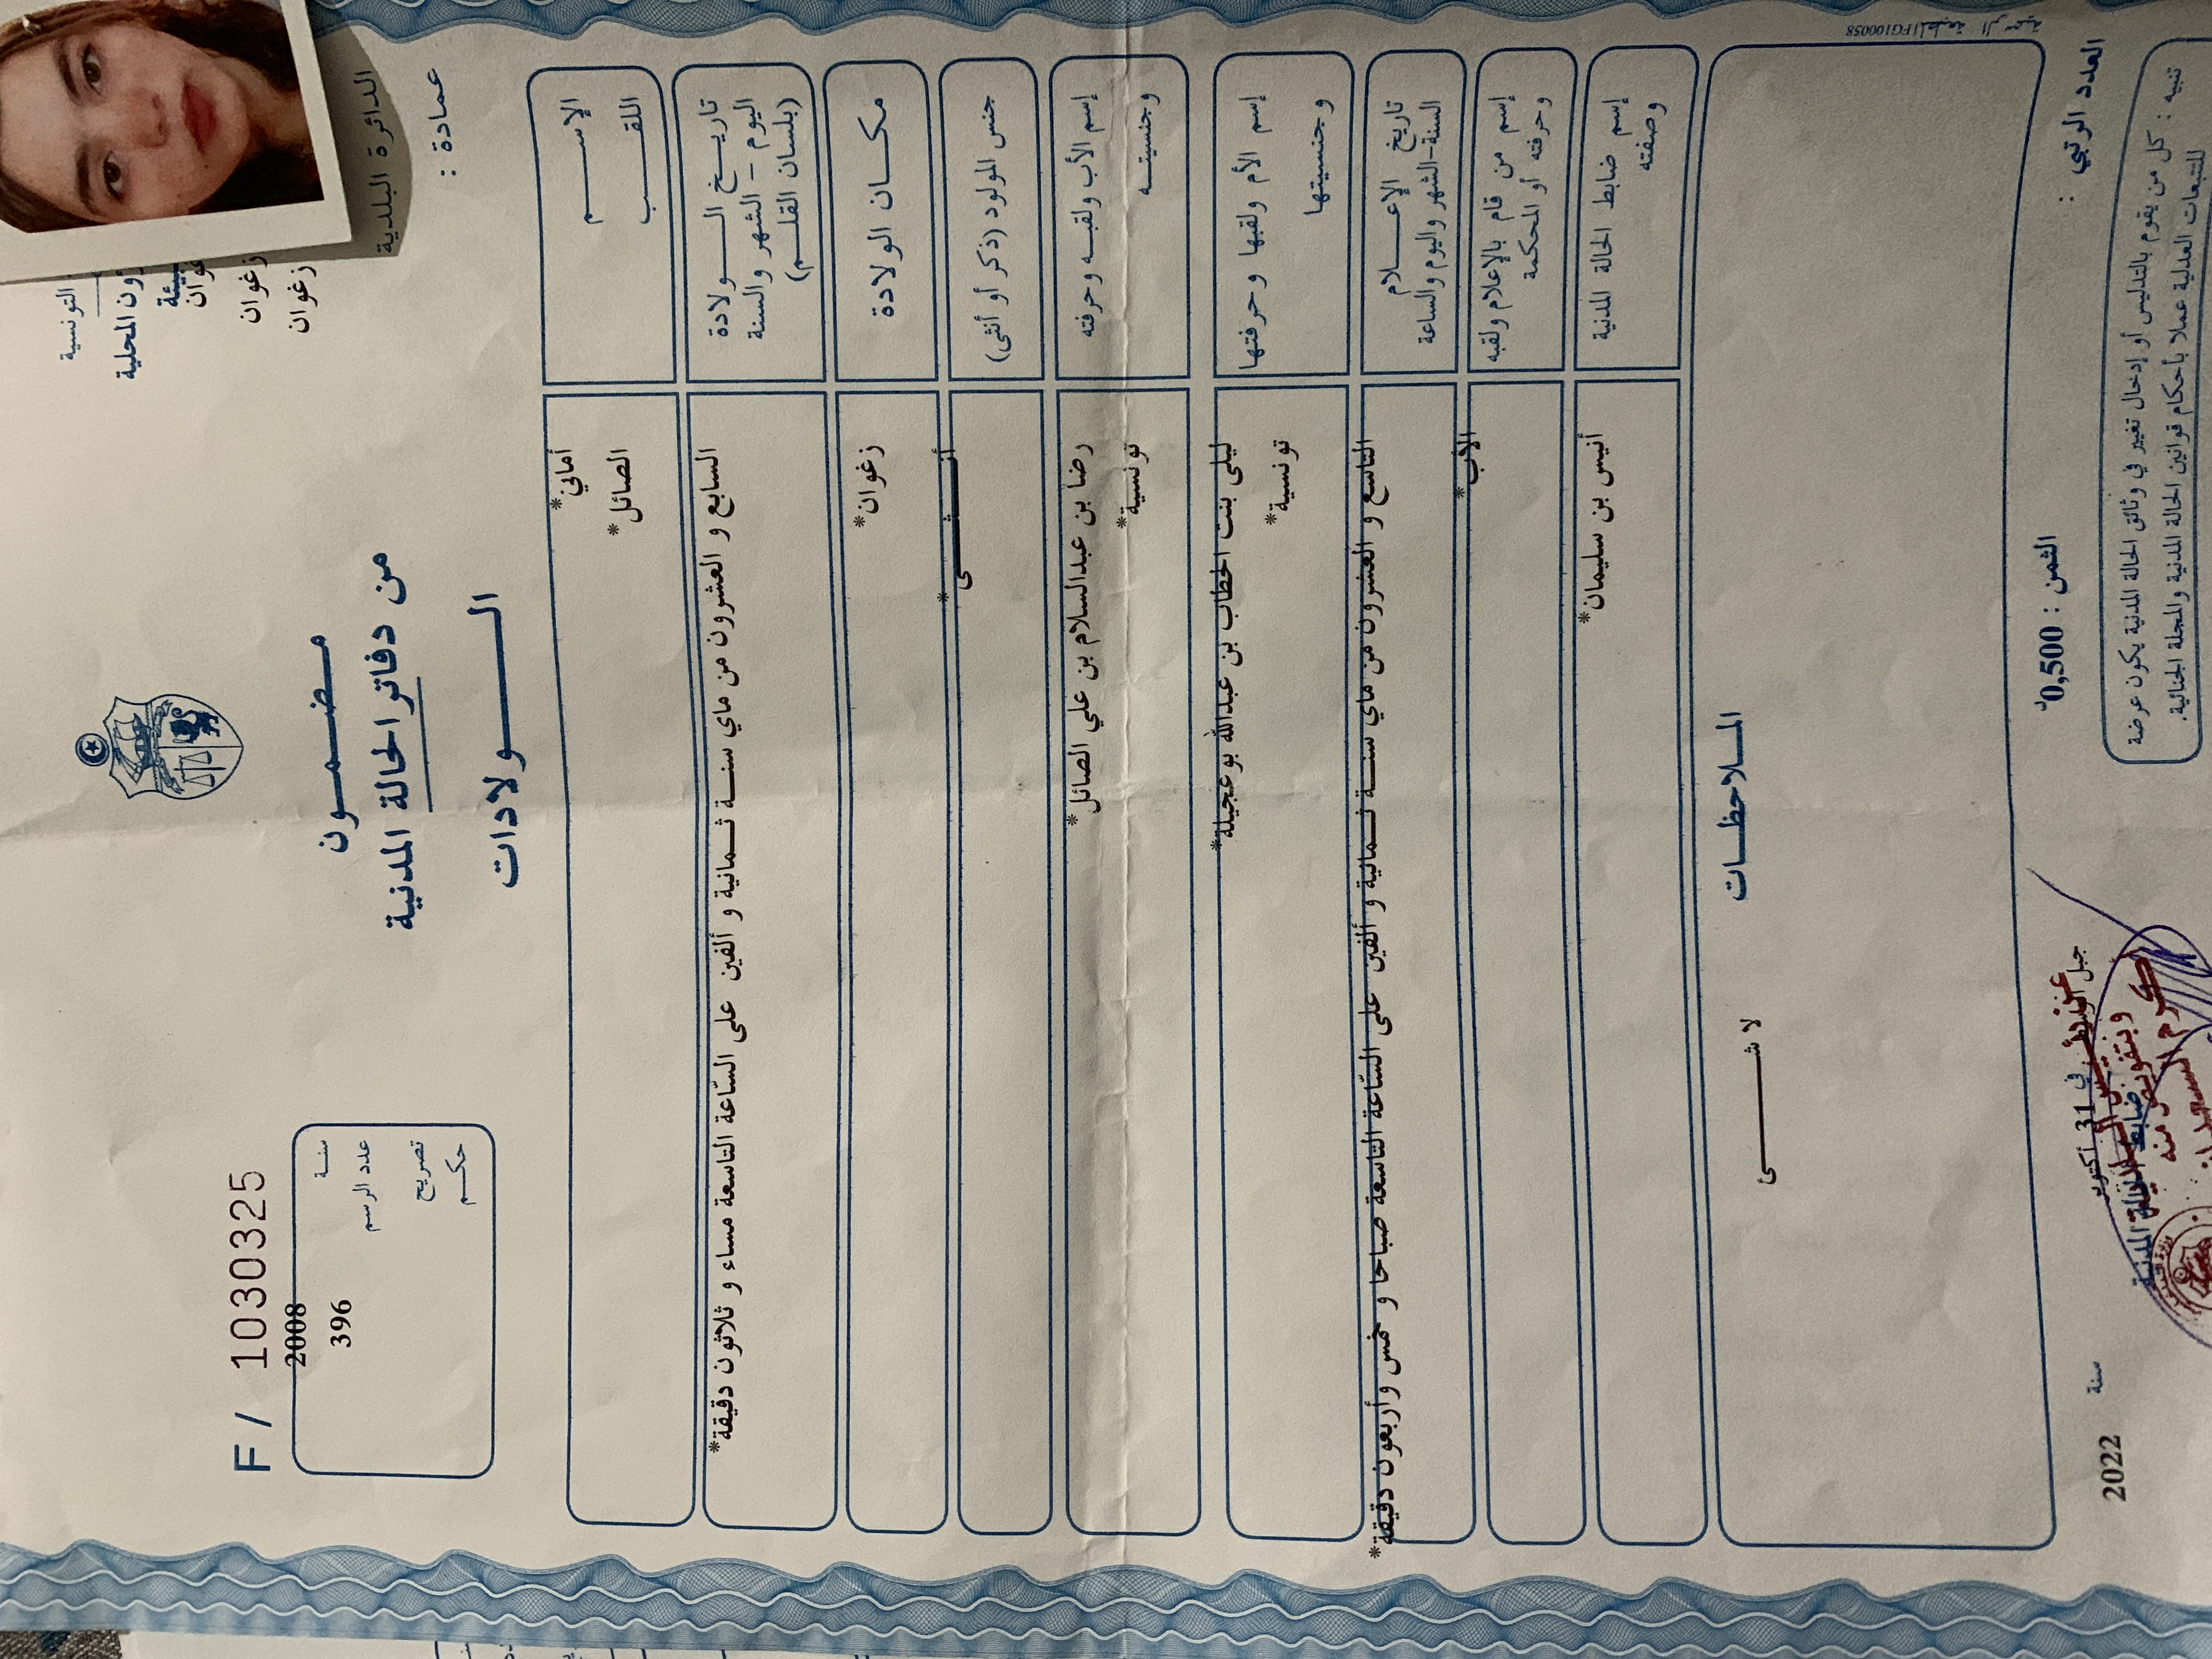 التونسية
ون المحلية
بيئة
زغوان
زغوان
الدائرة البلدية
عمادة :
F / 1030325
سنة 2008
عدد الرسم 396
تصريح
حكم
مضمون
من دفاتر الحالة المدنية
الولادات
الإسم أماني*
اللقب الصائل*
تاريخ الولادة
اليوم - الشهر والسنة
(بلسان القلم)
السابع و العشرون من ماي سنة ثمانية و ألفين على السّاعة التاسعة مساء و ثلاثون دقيقة*
مكان الولادة زغوان*
جنس المولود (ذكر أو أنثى) أنثى*
إسم الأب ولقبه وحرفته رضا بن عبدالسلام بن علي الصائل*
وجنسيته تونسية*
إسم الأم ولقبها وحرفتها ليلى بنت الحطاب بن عبدالله بوعجيلة*
وجنسيتها تونسية*
تاريخ الإعلام
السنة-الشهر واليوم والساعة
التاسع و العشرون من ماي سنة ثمانية و ألفين على السّاعة التاسعة صباحا و خمس وأربعون دقيقة*
إسم من قام بالإعلام ولقبه الأب*
وحرفته أو المحكمة
إسم ضابط الحالة المدنية أنيس بن سليمان*
وصفته
الملاحظات
لا شئ
المطبعة الرسمية FG100058
العدد الرتبي :
الثمن : 0,500د
في 31 أكتوبر سنة 2022
ضابط الحالة المدنية
وبتفويض منه
تنبيه : كل من يقوم بالتدليس أو إدخال تغيير في وثائق الحالة المدنية يكون عرضة
للتتبعات العدلية عملا بأحكام قوانين الحالة المدنية والمجلة الجنائية.